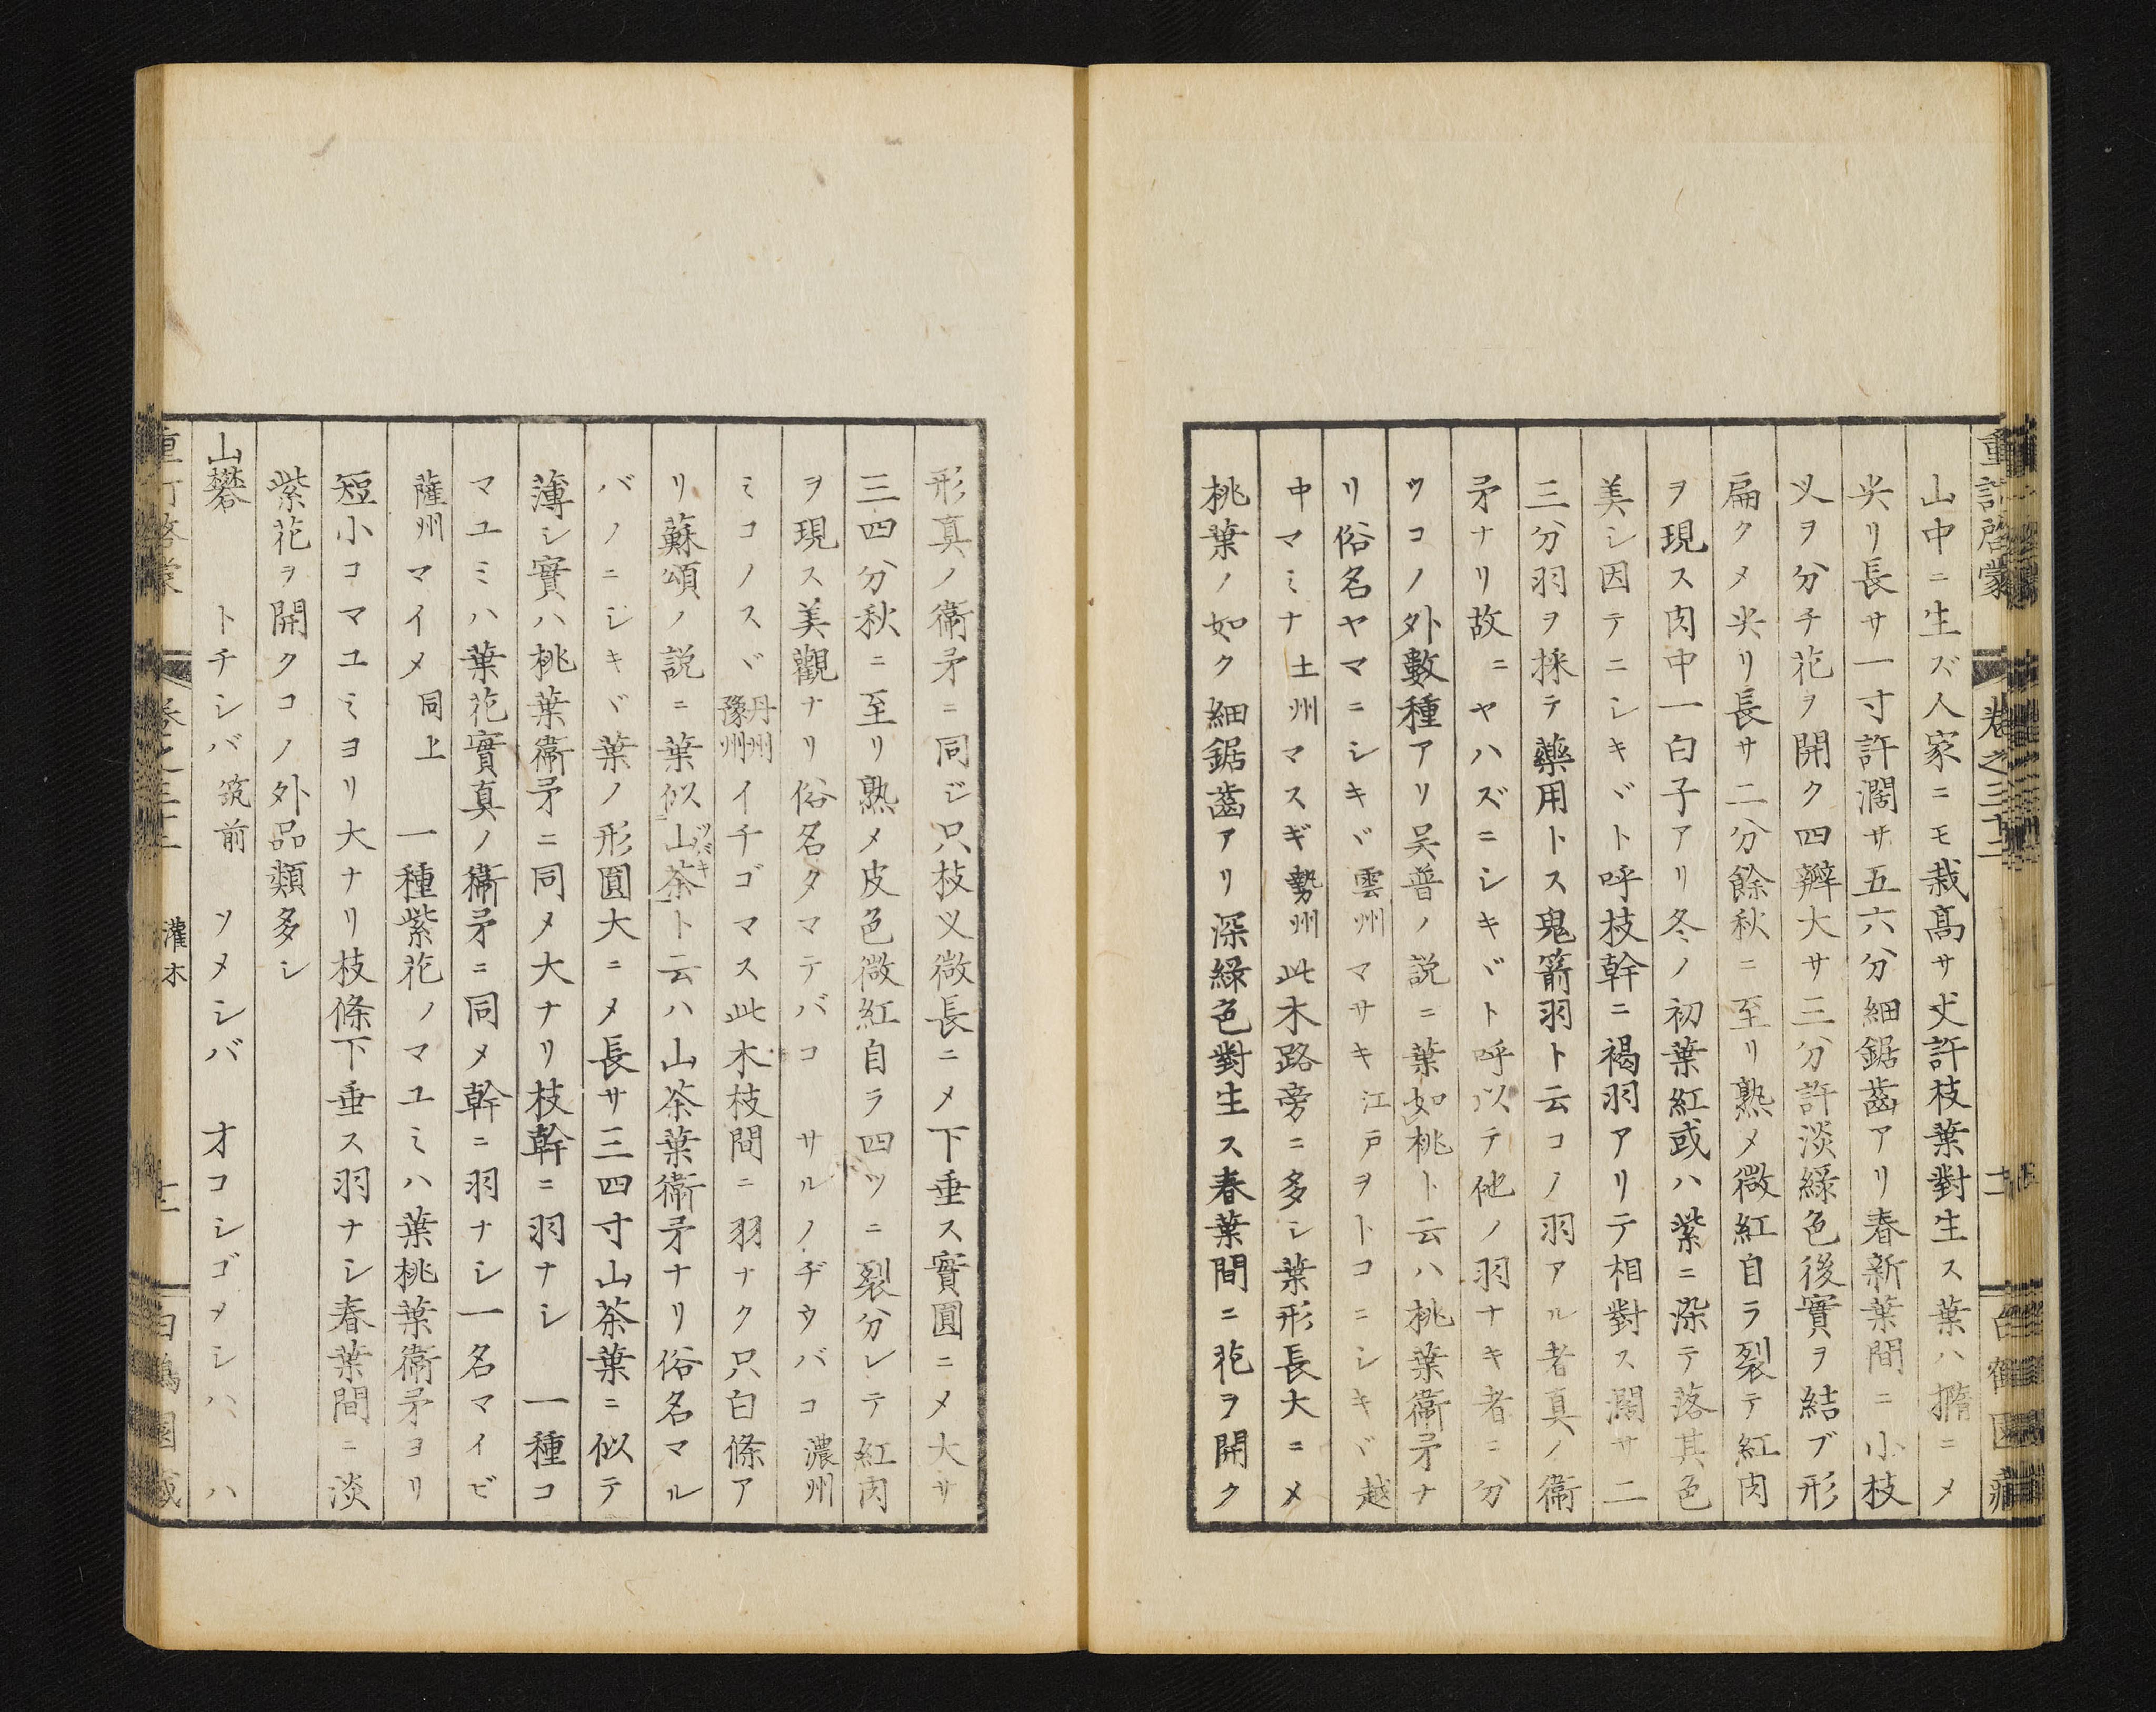 山中ニ生ズ人家ニモ栽高サ丈許枝葉對生ス葉ハ撱ニメ
尖リ長サ一寸許濶サ五六分細鋸齒アリ春新葉間ニ小枝
乂ヲ分チ花ヲ開ク四瓣大サ三分許淡綠色後實ヲ結ブ形
扁クメ尖リ長サ二分餘秋ニ至リ熟メ微紅自ラ裂テ紅肉
ヲ現ス肉中一白子アリ冬ノ初葉紅或ハ紫ニ染テ落其色
美シ因テニシキヾト呼枝幹ニ褐羽アリテ相對ス濶サ二
三分羽ヲ採テ藥用トス鬼箭羽ト云コノ羽アル者真ノ衞
矛ナリ故ニヤハズニシキヾト呼以テ他ノ羽ナキ者ニ分
ツコノ外數種アリ吴普ノ説ニ葉如桃ト云ハ桃葉衞矛ナ
リ俗名ヤマニシキヾ雲州マサキ江戸ヲトコニシキヾ越
中マミナ土州マスギ勢州此木路旁ニ多シ葉形長大ニメ
桃葉ノ如ク細鋸齒アリ深綠色對生ス春葉間ニ花ヲ開ク
重訂啓蒙 卷之三十二 十一 白鶴園藏
形真ノ衞矛ニ同ジ只枝乂微長ニメ下垂ス實圓ニメ大サ
三四分秋ニ至リ熟メ皮色微紅自ラ四ツニ裂分レテ紅肉
ヲ現ス美觀ナリ俗名タマテバコ サルノヂウバコ濃州
ミコノスヾ丹州豫州イチゴマス此木枝間ニ羽ナク只白條ア
リ蘇頌ノ説ニ葉似ニ山茶ツバキト云ハ山茶葉衞矛ナリ俗名マル
バノニシキヾ葉ノ形圓大ニメ長サ三四寸山茶葉ニ似テ
薄シ實ハ桃葉衞矛ニ同メ大ナリ枝幹ニ羽ナシ 一種コ
マユミハ葉花實真ノ衞矛ニ同メ幹ニ羽ナシ一名マイビ
薩州マイメ同上 一種紫花ノマユミハ葉桃葉衞矛ヨリ
短小コマユミヨリ大ナリ枝條下垂ス羽ナシ春葉間ニ淡
紫花ヲ開クコノ外品類多シ
山礬 トチシバ筑前 ソメシバ オコシゴメシバ ハ
卷之三十二 灌木 十一 白鶴園藏